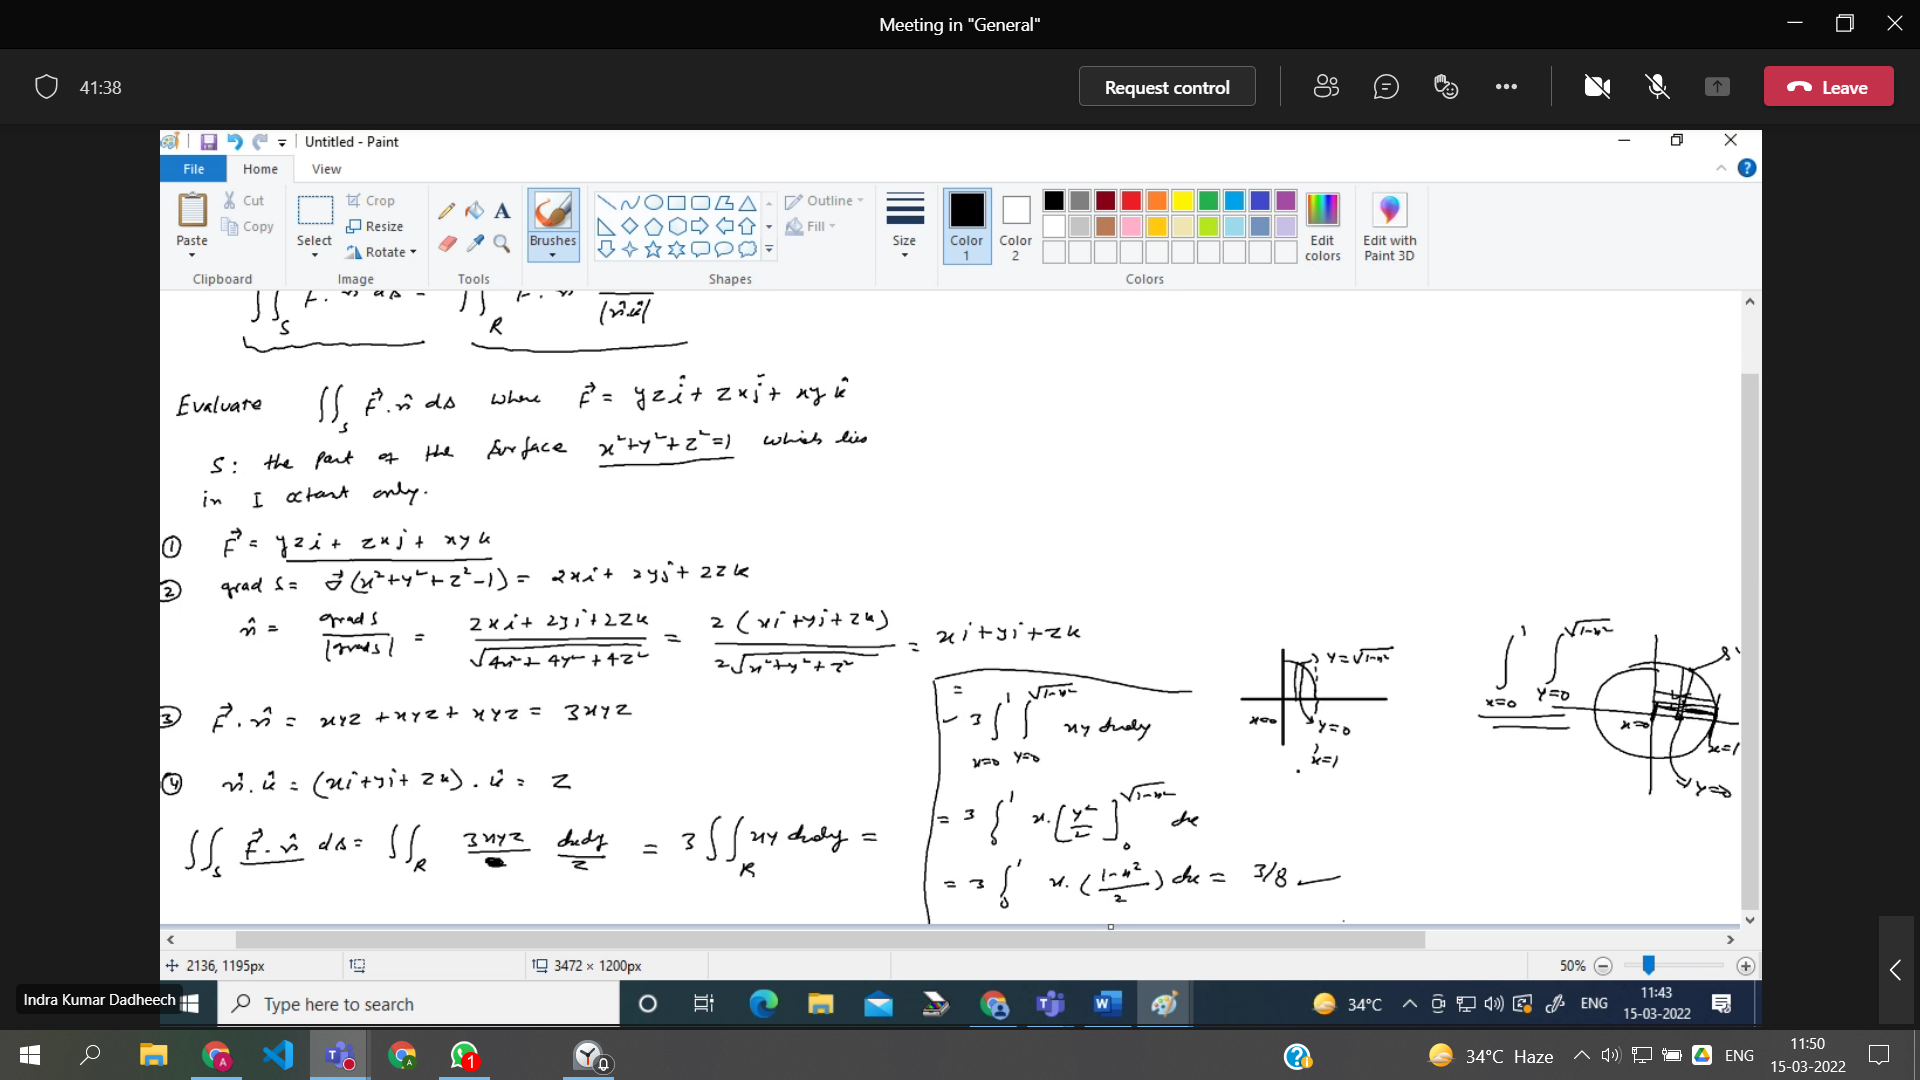 Meeting in "General"
41:38
Request control
Leave
Untitled - Paint
File Home View
Paste
Cut
Copy
Clipboard
Select
Crop
Resize
Rotate
Image
Tools
Brushes
Shapes
Outline
Fill
Size
Color 1
Color 2
Colors
Edit colors
Edit with Paint 3D
∬_S F⃗ · n̂ ds = ∬_R F⃗ · n̂ / |n̂·k̂|
Evaluate ∬_S F⃗ · n̂ ds where F⃗ = yz î + zx ĵ + xy k̂
S: the part of the surface x²+y²+z²=1 which lies
in I octant only.
① F⃗ = yzi + zxj + xyk
② grad S = ∇⃗(x²+y²+z²-1) = 2xi + 2yj + 2zk
n̂ = grad S / |grad S| = (2xi + 2yj + 2zk) / √(4x²+4y²+4z²) = 2(xi+yj+zk) / 2√(x²+y²+z²) = xi+yj+zk
③ F⃗ · n̂ = xyz + xyz + xyz = 3xyz
④ n̂·k̂ = (xi+yj+zk) · k̂ = z
∬_S F⃗ · n̂ ds = ∬_R 3xyz dxdy/z = 3∬_R xy dxdy =
= 3 ∫_{x=0}^{1} ∫_{y=0}^{√(1-x²)} xy dxdy
= 3 ∫_0^1 x·[y²/2]_0^{√(1-x²)} dx
= 3 ∫_0^1 x·((1-x²)/2) dx = 3/8
y=√(1-x²)
x=0
y=0
x=1
∫_{x=0}^{1} ∫_{y=0}^{√(1-x²)}
x=0
x=1
y=0
2136, 1195px
3472 × 1200px
50%
Indra Kumar Dadheech
Type here to search
34°C
ENG
11:43
15-03-2022
1
34°C Haze
ENG
11:50
15-03-2022